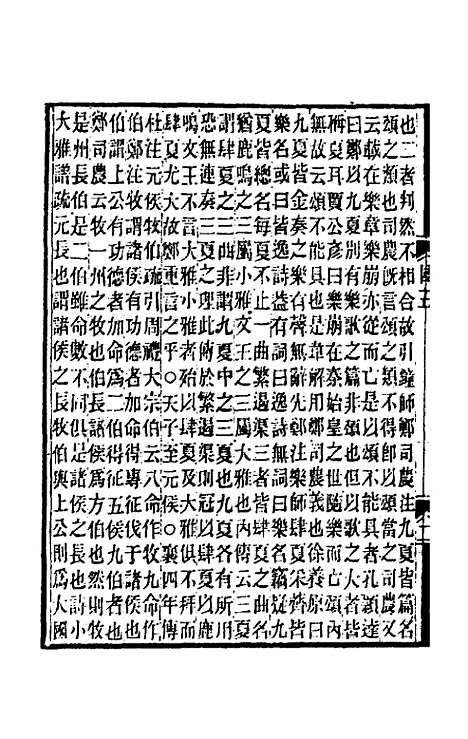 也二者判然不相合故引鐘師鄭司農注九夏皆篇名
頌之類也司農既言頌之類不得即以頌當之司農又
云載在樂章樂崩亦從而亡是以頌不能具者孔穎達
曰鄭以九夏別有樂歌之篇非頌也但以歌之大者皆
稱夏耳賈公彥曰在秦始皇之世隨樂而亡頌內
無故云頌不能具也是章解用鄭司農義也徐養原曰
九夏皆金奏之樂有聲無辭先鄭注樂師肆夏采薺皆
樂名或曰皆逸詩益有詞曰逸詩無詞曰樂名籟疑九
夏皆總名每夏不止一曲繁遏渠三者皆肆夏之曲名
猶鹿鳴之三屬小雅文王之三屬大雅也內傳云三夏
謂肆夏之三曲非謂九夏中之三夏也九夏各有所用
恐無連奏三夏之理此傳於繁遏渠則冠以肆夏以鹿
鳴文王不言小雅大雅者以肆夏及大雅俱不拜而
肆夏尤大故鄭重言之乎○天子至元侯○襄四年傳
杜注元侯牧伯疏引周禮大宗伯云八命作牧九命作
伯鄭注牧謂侯伯有功德者加命得專征伐于諸侯
伯謂上公有功德者加命爲二伯得征五侯九伯者也
鄭司農云牧一州之牧也伯長諸侯爲方伯也然則牧
是州長伯是二伯雖命數不同俱是諸侯之長也詩小
大雅譜疏元長也謂諸侯之長牧伯與上公則爲大國